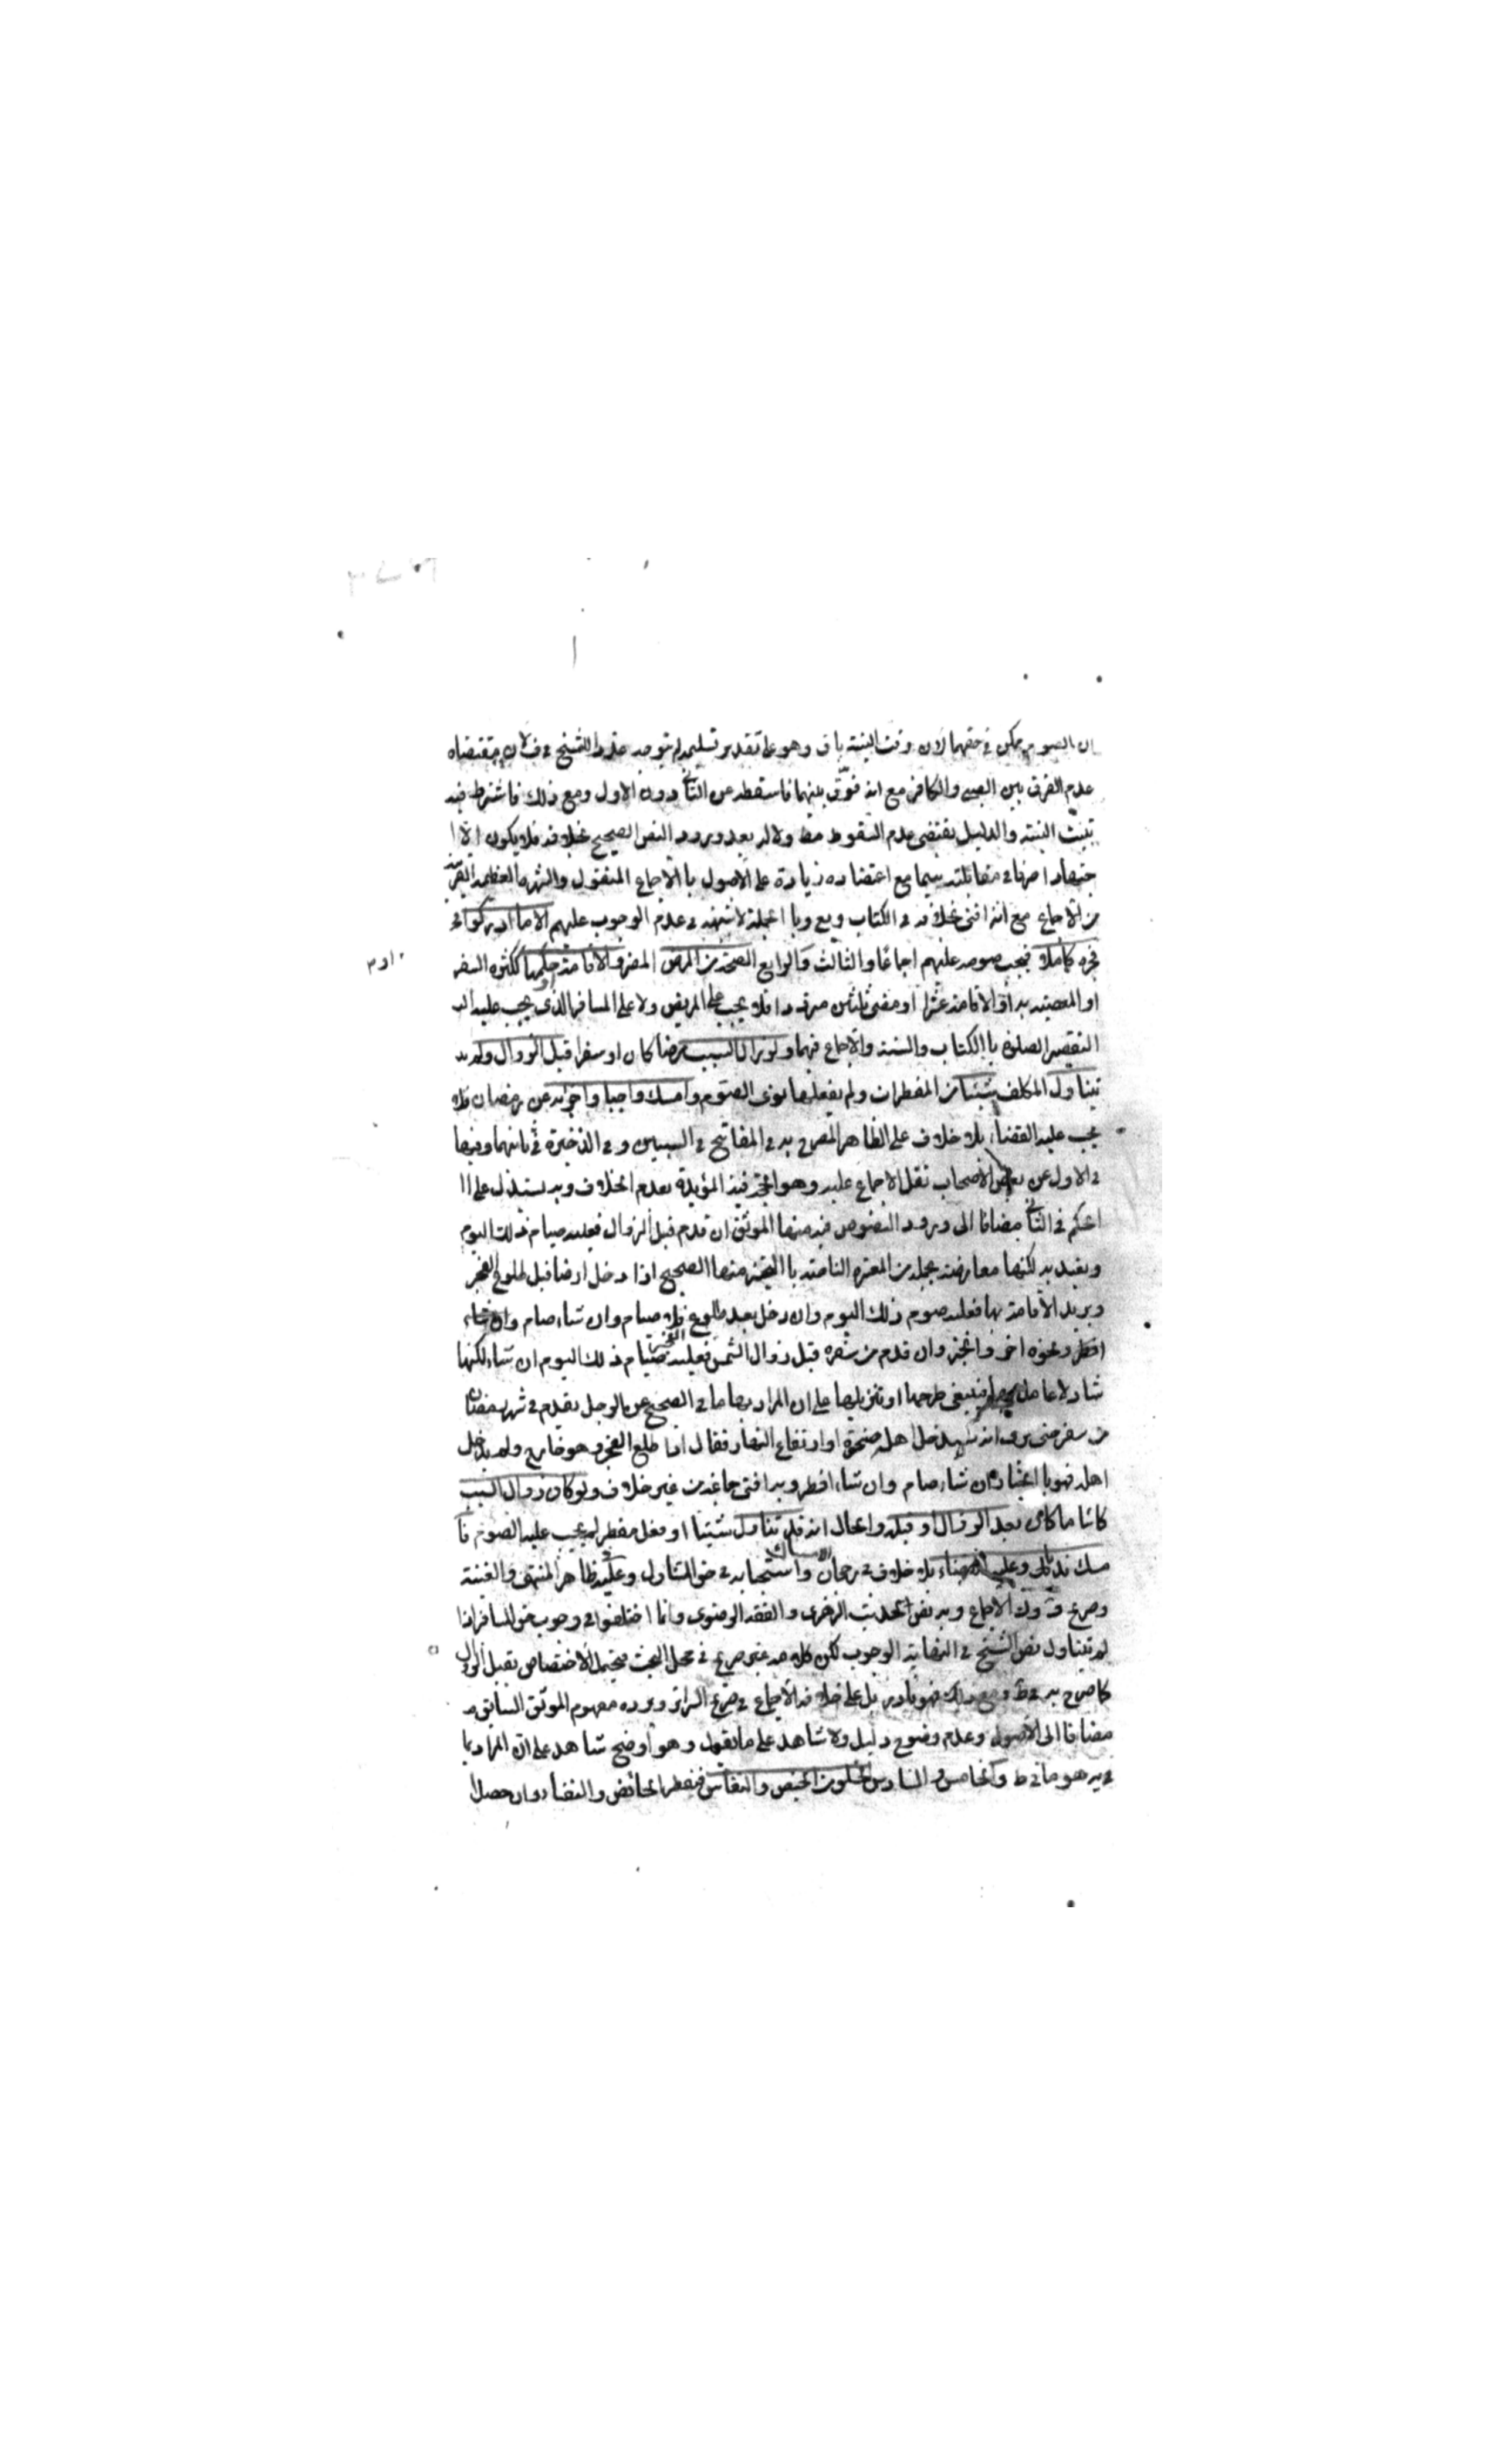 ان الصوم ممكن في حقهما لان وقت النية باق وهو على تقدير تسليمه لم يوجد عذر الشيخ في ف لان مقتضاه
عدم الفرق بين الصبي والكافر مع انه فرّق بينهما فاسقطه عن الثاني دون الاول ومع ذلك فاشترط فيه
تبييت النية والدليل يقتضي عدم السقوط مط ولا له بعد ورود النص الصحيح بخلافه فلا يكون الا ا
جتهادا صرفا في مقابلته سيما مع اعتضاده زيادة على الاصول بالاجماع المنقول والشهرة العظيمة القريبة
من الاجماع مع انه افتى بخلافه في الكتاب ويع وبا الجملة لا شبهة في عدم الوجوب عليهم الا ما ادركوا
فجره كاملا فيجب صومه عليهم اجماعا والثالث والرابع الصحة من المرض المضر والاقامة او حكمها ككثرة السفر
او المعصية به او الاقامة عشرا او مضى ثلثين مترددا فلا يجب على المريض ولا على المسافر الذي يجب عليه
التقصير الصلوة باالكتاب والسنة والاجماع فيهما ولو زال السبب مرضا كان او سفرا قبل الزوال ولم
يتناول المكلف شيئا من المفطرات ولم يفعلها نوى الصوم وامسك واجبا واجزأه عن رمضان فلا
يجب عليه القضاء بلا خلاف على الظاهر المصرح به في المفاتيح في السببين وفي الذخيرة في ثانيهما وفيها
في الاول عن بعض الاصحاب نقل الاجماع عليه وهو الحجة فيه المؤيدة بعدم الخلاف وبه يستدل على ا
الحكم في الثاني مضافا الى ورود النصوص فيه منها الموثق ان قدم قبل الزوال فعليه صيام ذلك اليوم
ويعتد به لكنها معارضة بجملة من المعتبرة منها الصحيح اذا دخل ارضا قبل طلوع الفجر
ويريد الاقامة بها فعليه صوم ذلك اليوم وان دخل بعد طلوع الفجر فلا صيام وان شاء صام وان شاء
افطر ونحوه اخر والخبر وان قدم من سفره قبل زوال الشمس فعليه صيام ذلك اليوم ان شاء لكنها
شاذ لا عامل بها فينبغي طرحها او تنزيلها على ان المراد بها ما في الصحيح عن الرجل يقدم في شهر رمضان
من سفر حتى يرى انه سيدخل اهله ضحوة او ارتفاع النهار فقال اذا طلع الفجر وهو خارج ولم يدخل
اهله فهو بالخيار ان شاء صام وان شاء افطر وبه افتى جماعة من غير خلاف ولو كان زوال السبب
كائنا ما كان بعد الزوال او قبله والحال انه قد تناول شيئا او فعل مفطر لم يجب عليه الصوم فا
مسك ندبا وعليه القضاء بلا خلاف في رجحان الامساك واستحبابه في حق المتناول وعليه ظاهر المنتهى والغنية
وصرح ف الاجماع وبه نص الحديث الزهري والفقه الرضوي وانما اختلفوا في وجوب حق المسافر اذا
لم يتناول نص الشيخ في النهاية الوجوب لكن كلامه غير صريح في محل البحث فيحتمل الاختصاص بقبل الزوال
كما صرح به في ط ومع ذلك فهو نادر بل على خلافه الاجماع في صريح السرائر ويرده مفهوم الموثق السابق
مضافا الى الاصول وعدم وضوح دليل ولا شاهد على ما يقول وهو اوضح شاهد على ان المراد بما
في يه هو ما في ط والخامس والسادس الخلو من الحيض والنفاس فتفطر الحائض والنفساء وان حصل